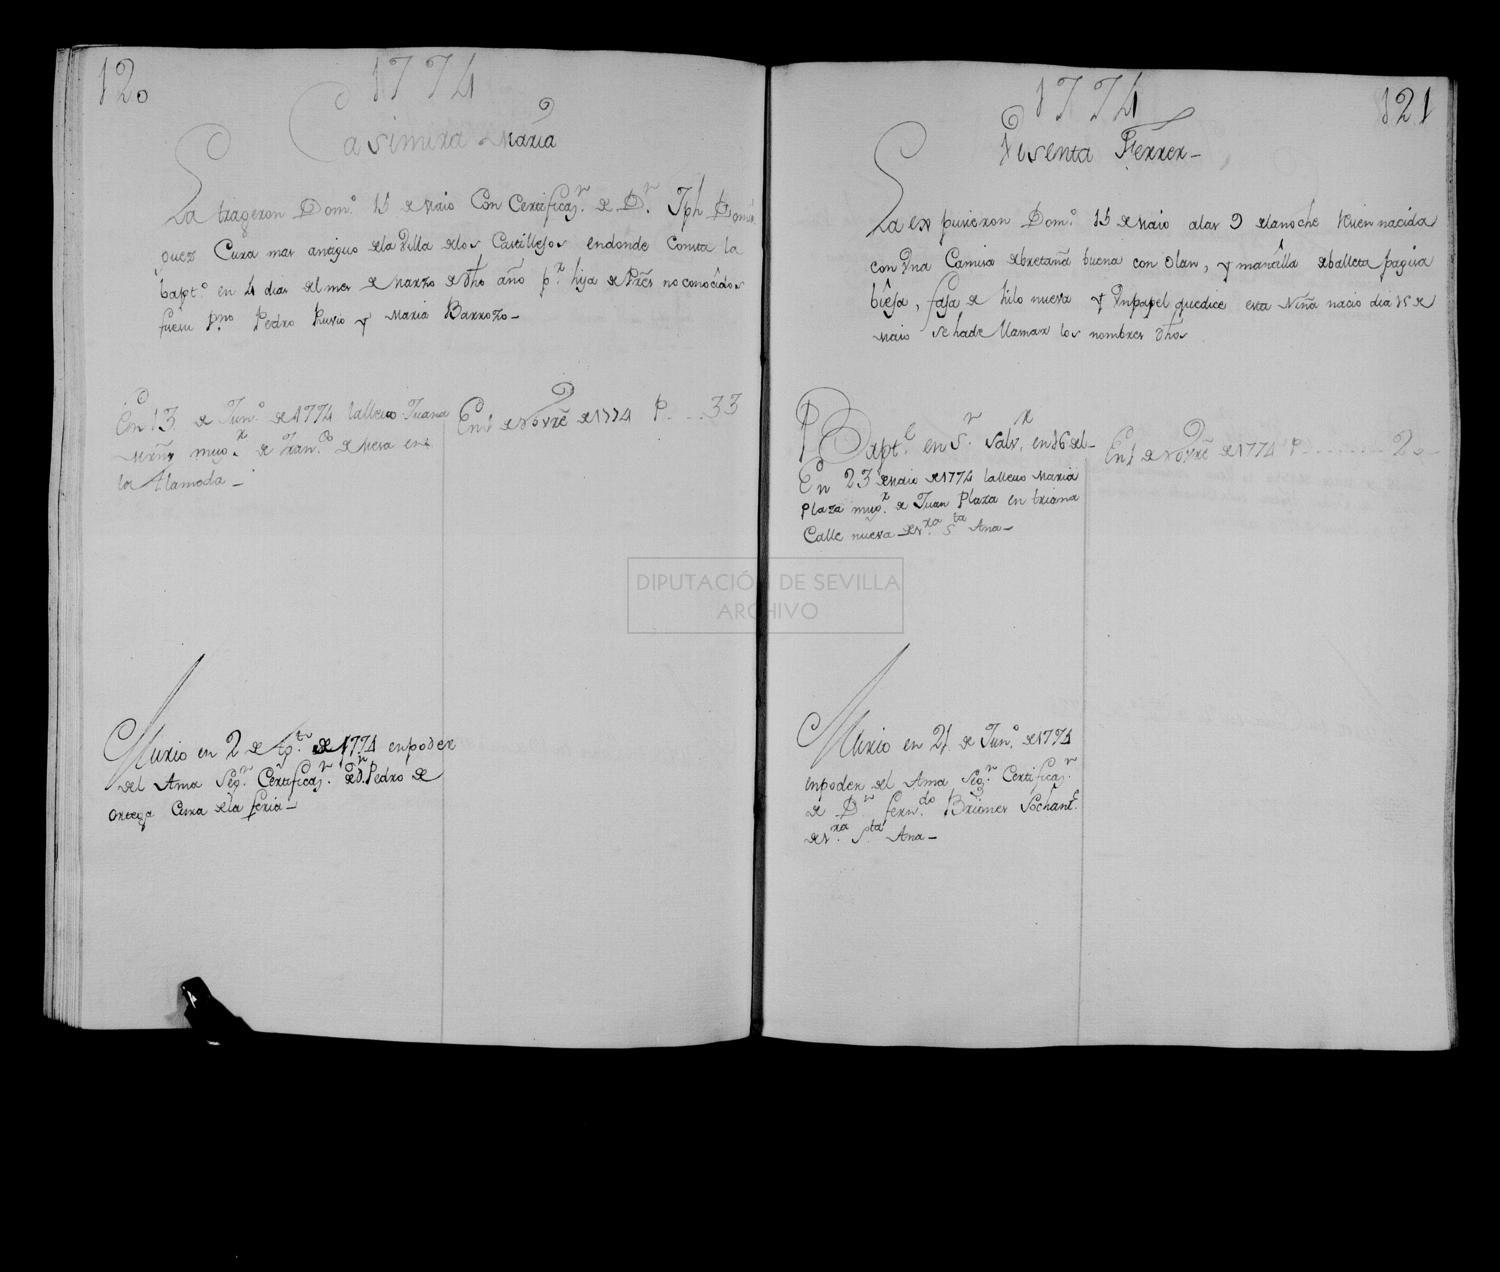 120
1774
Casimira Maria
La trageron Dom.º 15 de Maio Con Certificaz.n de D.n Jph Domin
guez Cura mas antiguo dela Villa delos Castillejos endonde Consta la
bapt.º en 4 dias del mes de Marzo de dho año p.r hija de Pães no conocidos
fueron p.nos Pedro Ruvio y Maria Barrozo-
En 13 de Jun.º de 1774 lalleuo Juana
Muñiz mug.r de Fran.co de Mesa en
la Alameda -
En 1 de Novrẽ de 1774 P....33
Murio en 2 de Ag.to de 1774 enpoder
del Ama Seg.n Certificaz.n de D.n Pedro de
Ortega Cura dela feria-
1774
121
Visenta Ferrer-
La expusieron Dom.º 15 de Maio alas 9 delanoche Rẽcien nacida
con Vna Camisa debretaña buena con olan, y mantilla deballeta pagisa
bieja, faja de hilo nueva y Vnpapel quedice esta Niña nacio dia 15 de
Maio sehade llamar los nombres dhos
Bapt.e en S.n Salv.r en 16 del-
En 23 de Maio de 1774 lalleuo Maria
Plaza mug.r de Juan Plaza en triana
Calle nueva de N.ra S.ta Ana-
En 1 de Novrẽ de 1774 P.........20-
Murio en 21 de Jun.º de 1774
enpoder del Ama Seg.n Certificaz.n
de D.n fern.do Briones Sochant.e
de N.ra S.ta Ana-
DIPUTACIÓN DE SEVILLA
ARCHIVO